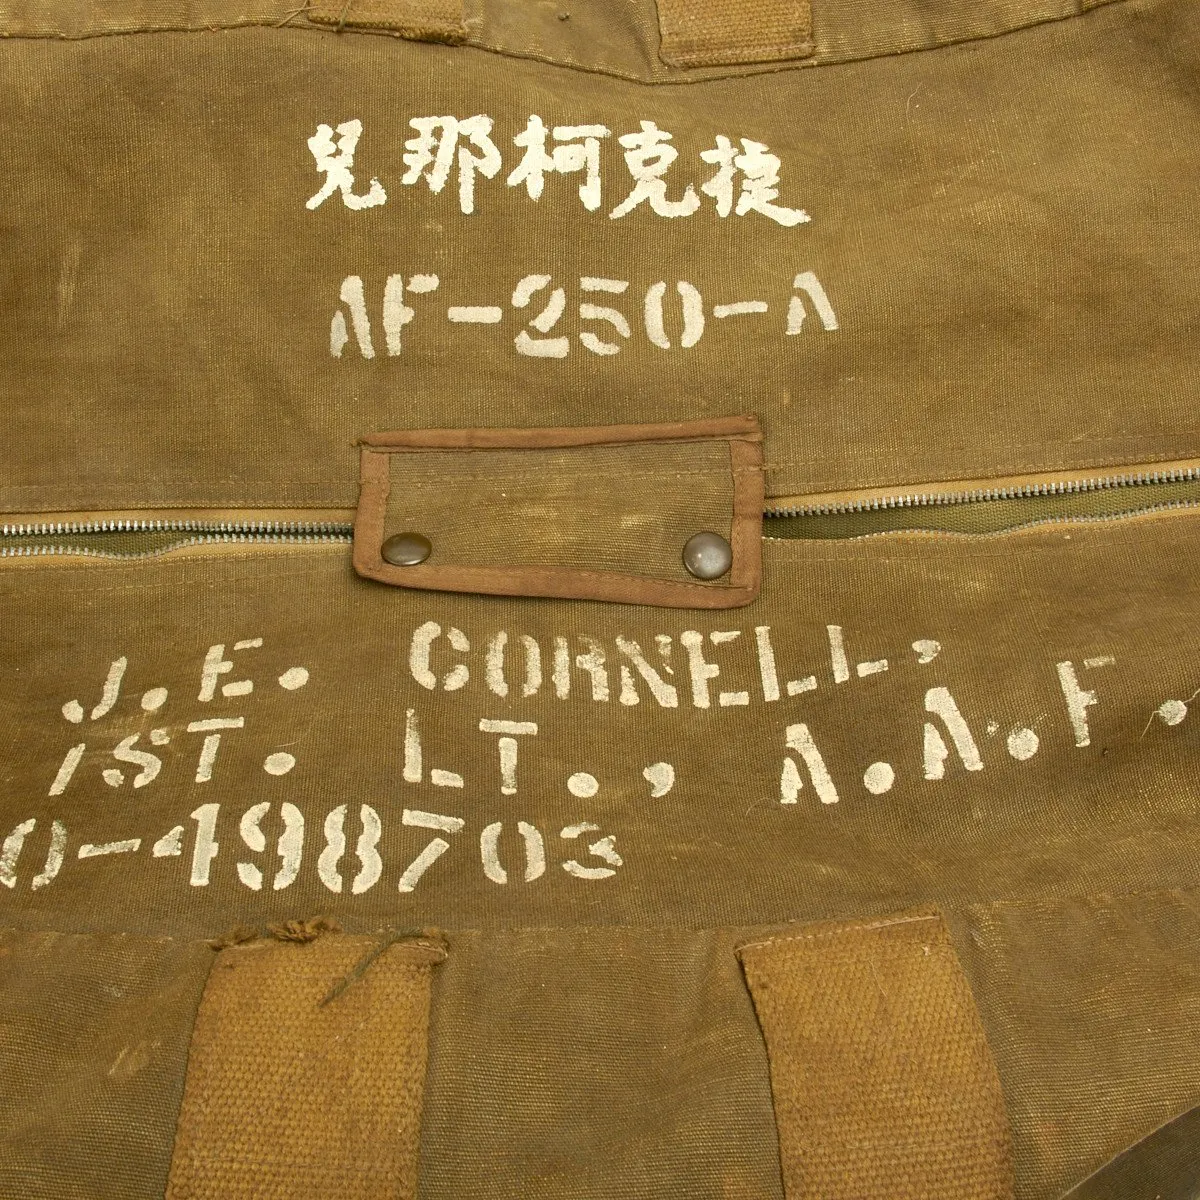 兒那柯克捷
AF-250-A
J.E. CORNELL,
1ST. LT., A.A.F.
O-498703